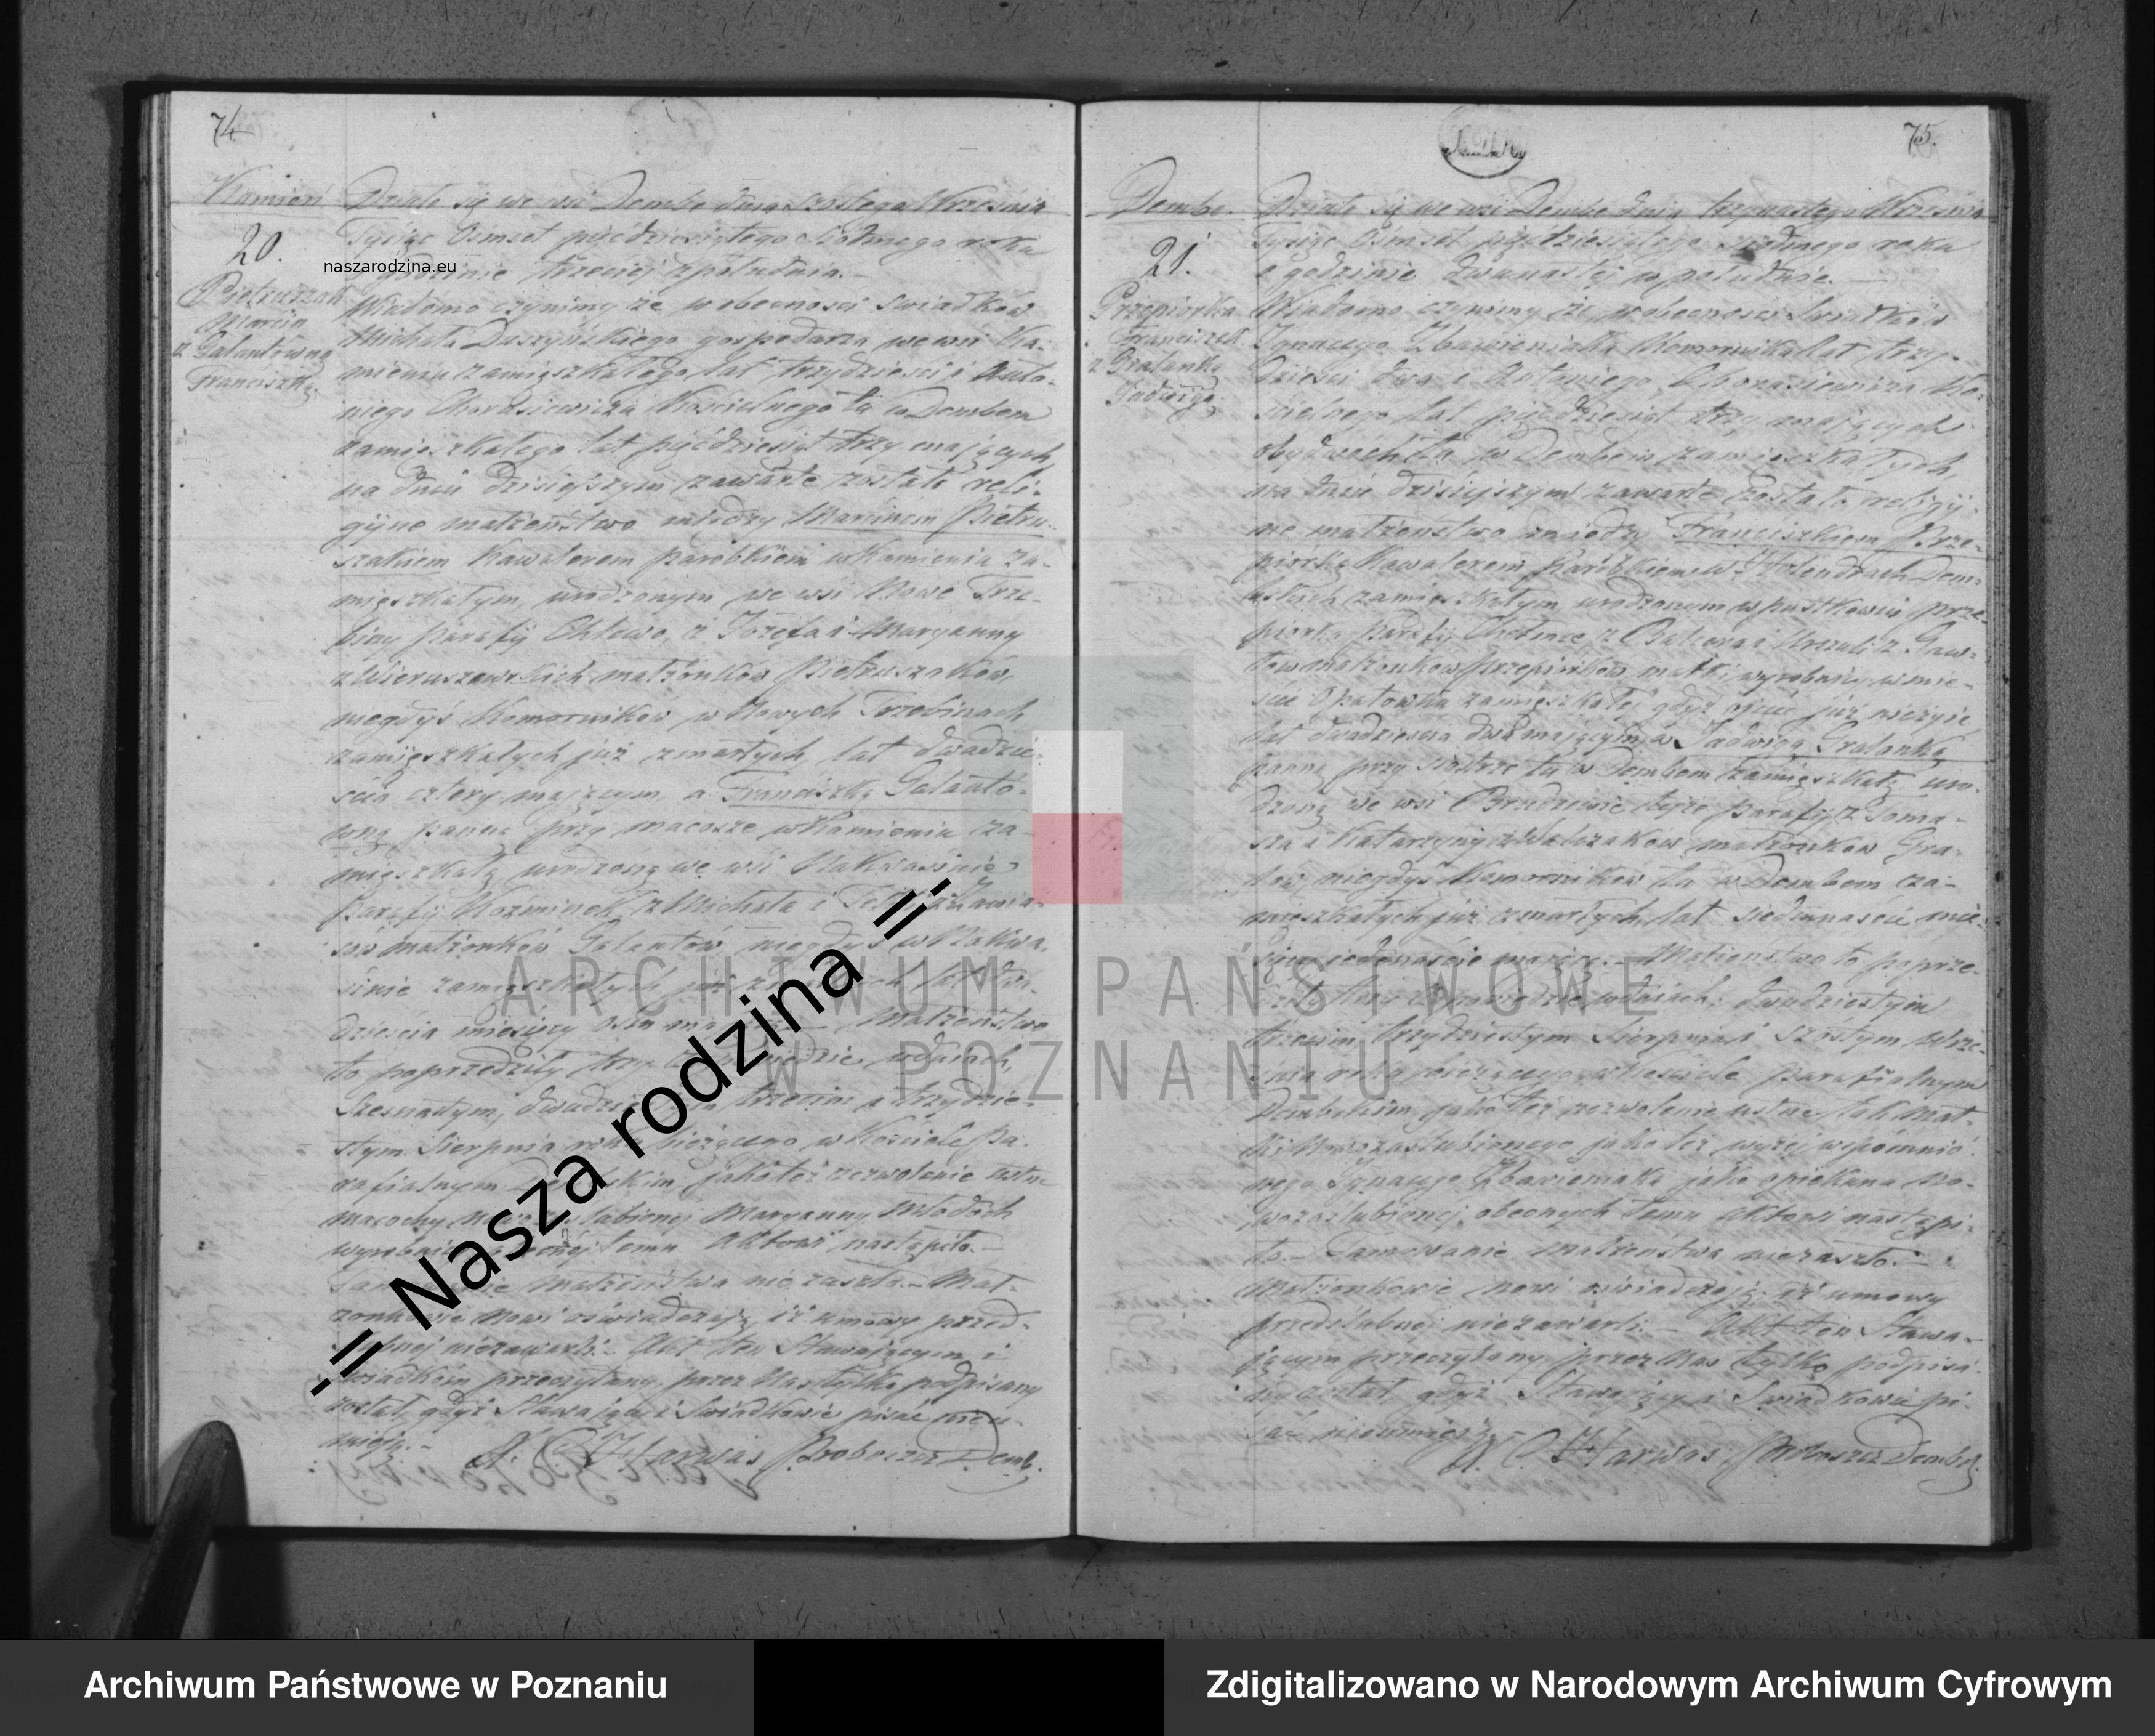 74
Kamień
20.
Pietruszak
Marcin
z Galantówną
Franciszką.
Działo się we wsi Dembe dnia szóstego Września
Tysiąc Osmset pięćdziesiątego siódmego roku
o godzinie trzeciej z południa.
Wiadomo czynimy że w obecności świadków
Michała Duszyńskiego gospodarza we wsi Ka-
mieniu zamięszkałego lat trzydzieści i Anto-
niego Chorasiewicza Kościelnego tu w Dembem
zamięszkałego lat pięćdziesiąt trzy mających
na dniu dzisiejszym zawarte zostało reli-
gijne małżeństwo między Marcinem Pietru-
szakiem Kawalerem parobkiem w Kamieniu za-
mięszkałym, urodzonym we wsi Nowe Trze-
biny parafij Chlewo, z Józefa i Maryanny
z Wieruszewskich małżonków Pietruszaków
niegdyś Komorników w Nowych Trzebinach
zamięszkałych już zmarłych, lat dwadzie-
ścia cztery mającym, a Franciszką Galantó-
wną panną przy macosze w Kamieniu za-
mięszkałą urodzoną we wsi Nakwasinie
parafij Koźminek z Michała i
sów małżonków Galantów niegdyś w Nakwa-
sinie zamięszkałych
dzieścia miesięcy ośm Małżeństwo
to poprzedziły trzy w dniach,
szesnastym, trzecim i trzydzie-
stym Sierpnia roku bieżącego w Kościele Pa-
rafialnym jako też zezwolenie ustne
macochy Maryanny
temu Aktowi nastąpiło.
małżeństwa nie zaszło. – Mał-
żonkowie nowi oświadczają iż umowy przed-
ślubnej niezawarli. – Akt ten Stawającym i
świadkom przeczytany, przez Nas tylko podpisany
został, gdyż Stawający i Świadkowie pisać nieu-
mieją. –
X. C. Harwas Proboszcz Demb.
75.
Dembe.
21.
Przepiórka
Franciszek
z Gralanką
Jadwigą.
Działo się we wsi Dembe dnia trzynastego Września
Tysiąc Osmset pięćdziesiątego siódmego roku
o godzinie dwunastej w południe. –
Wiadomo czynimy że w obecności Świadków
Ignacego Zbawieniaka Komornika lat trzy-
dzieści dwa i Antoniego Chorasiewicza Ko-
ścielnego lat pięćdziesiąt trzy mających
obydwóch tu w Dembem zamieszkałych,
na dniu dzisiejszym zawarte zostało religij-
ne małżenstwo między Franciszkiem Prze-
piórką Kawalerem Parobkiem w Holendrach Dem-
bskich zamięszkałym urodzonym w pustkowiu prze-
piórka parafij z i Urszuli z Gaw-
małżonków Przepiórków, matki wyrobnicy w mie-
ście Opatówku zamięszkałej gdyż ojciec już nieżyje
lat dwadzieścia dwa mającym, a Jadwigą Gralanką
panną przy siostrze tu w Dembem zamięszkałą uro-
dzoną we wsi tejże parafij z Toma-
sza i Katarzyny z Walczaków małżonków Gra-
lów niegdyś Komorników tu w Dembem za-
mięszkałych już zmarłych, lat siedmnaście mie-
sięcy jedenaście mającą. – Małżeństwo to poprze-
dziły trzy zapowiedzie w dniach: dwudziestym
trzecim, trzydziestym Sierpnia i szóstym Wrze-
śnia roku bieżącego w Kościele Parafialnym
Dembskim, jako też zezwolenie ustne tak mat-
ki Nowozaślubionego jako też wyżej wspomnio-
nego Ignacego Zbawieniaka jako opiekuna No-
wozaślubionej obecnych temu Aktowi nastąpi-
ło. – Tamowanie małżeństwa niezaszło. –
Małżonkowie nowi oświadczają iż umowy
przedślubnej niezawarli. – Akt ten Stawa-
jącym przeczytany, przez Nas tylko podpisa-
ny został gdyż Stawający i Świadkowie pi-
sać nieumieją. –
X. C. Harwas Proboszcz Dembs.
naszarodzina.eu
-= Nasza rodzina =-
ARCHIWUM PAŃSTWOWE
W POZNANIU
Archiwum Państwowe w Poznaniu
Zdigitalizowano w Narodowym Archiwum Cyfrowym